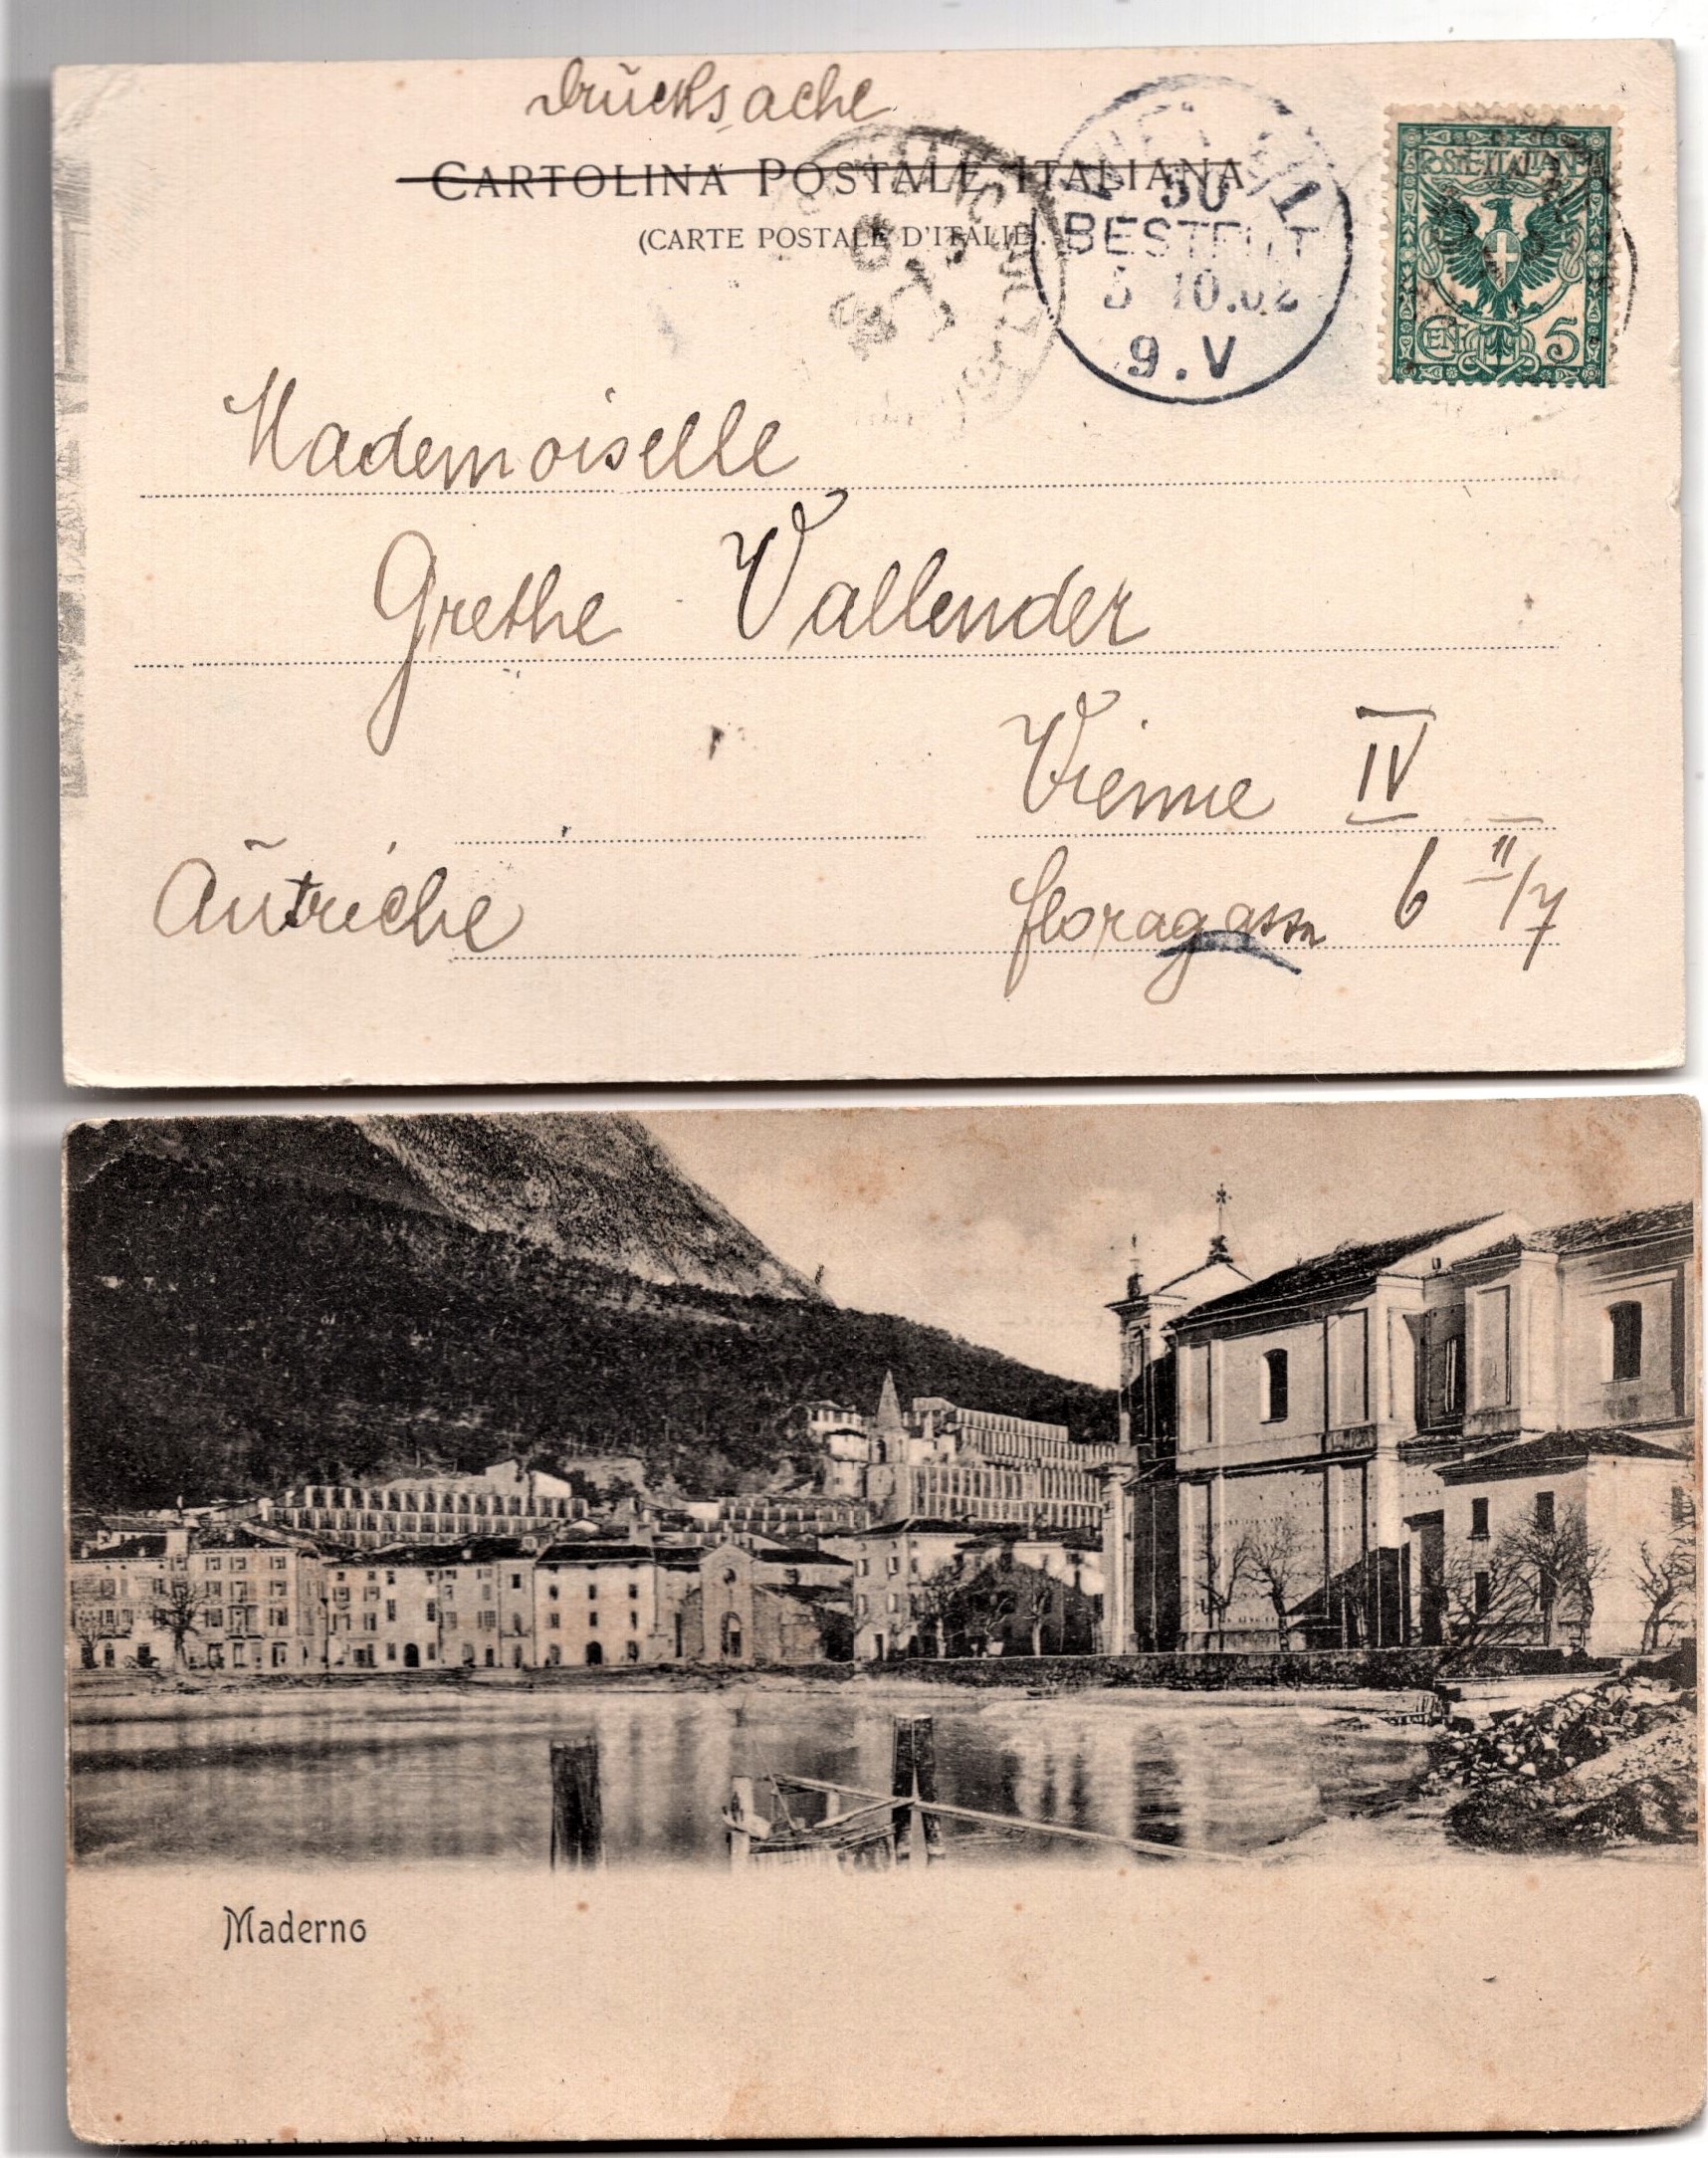 Drucksache
CARTOLINA POSTALE ITALIANA
(CARTE POSTALE D'ITALIE).
50
BESTELLT
5 10.02
9.V
POSTE·ITALIANE
CEN. 5
Mademoiselle
Grethe Vallender
Vienne IV
Autriche
floragasse 6 II/7
Maderno